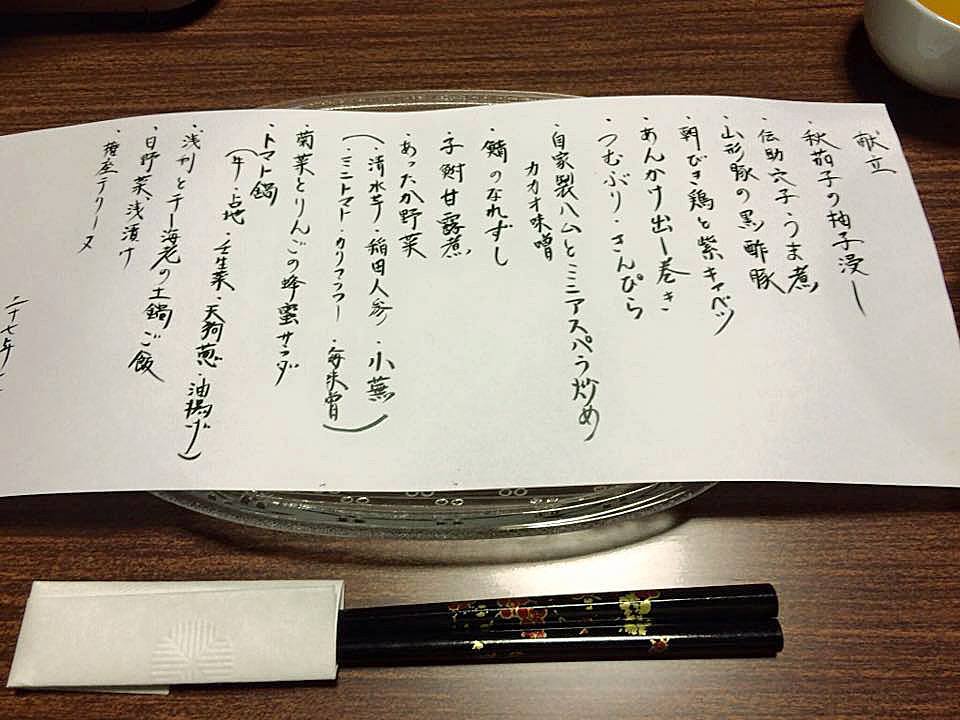 献立
・秋茄子の柚子浸し
・伝助穴子うま煮
・山形豚の黒酢豚
・朝びき鶏と紫キャベツ
・あんかけ出し巻き
・つむぶり・きんぴら
・自家製ハムとミニアスパラ炒め
カカオ味噌
・鯖のなれずし
子鮒甘露煮
・あったか野菜
(・清水芋・稲田人参・小蕪
・ミニトマト・カリフラワー・毎味噌)
・菊菜とりんごの蜂蜜サラダ
・トマト鍋
(牛・占地・壬生菜・天狗葱・油揚げ)
・浅利と干し海老の土鍋ご飯
・日野菜浅漬け
テリーヌ
二十七年